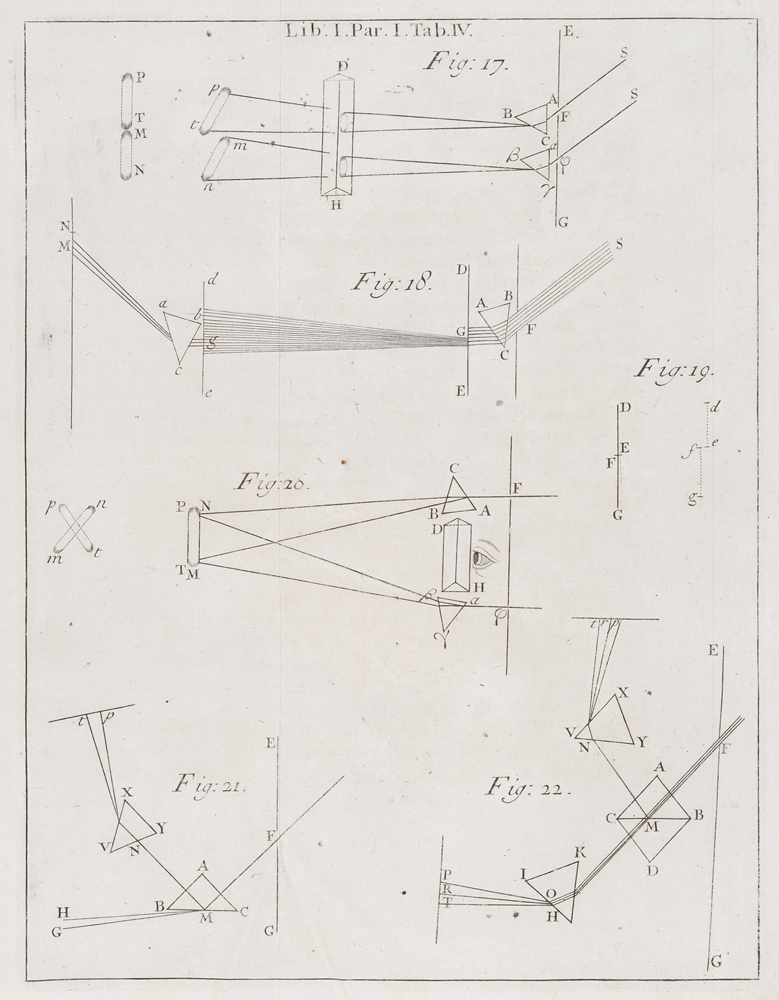 Lib. I. Par. I. Tab. IV.
Fig: 17.
P
T
M
N
p
t
m
n
D
H
A
B
C
F
E
S
S
β
a
φ
γ
G
Fig: 18.
N
M
a
b
c
d
g
e
D
G
E
A
B
C
F
S
Fig: 19.
D
E
F
G
d
e
f
g
Fig: 20.
p
n
m
t
P N
T M
C
B
A
F
D
H
β
a
γ
φ
Fig: 21.
t
p
X
Y
V
N
A
B
M
C
H
G
E
F
G
Fig: 22.
t r p
X
V
N
Y
E
F
A
C
M
B
D
K
I
O
H
P
R
T
G